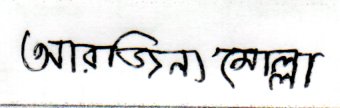 আরজিনা মোল্লা